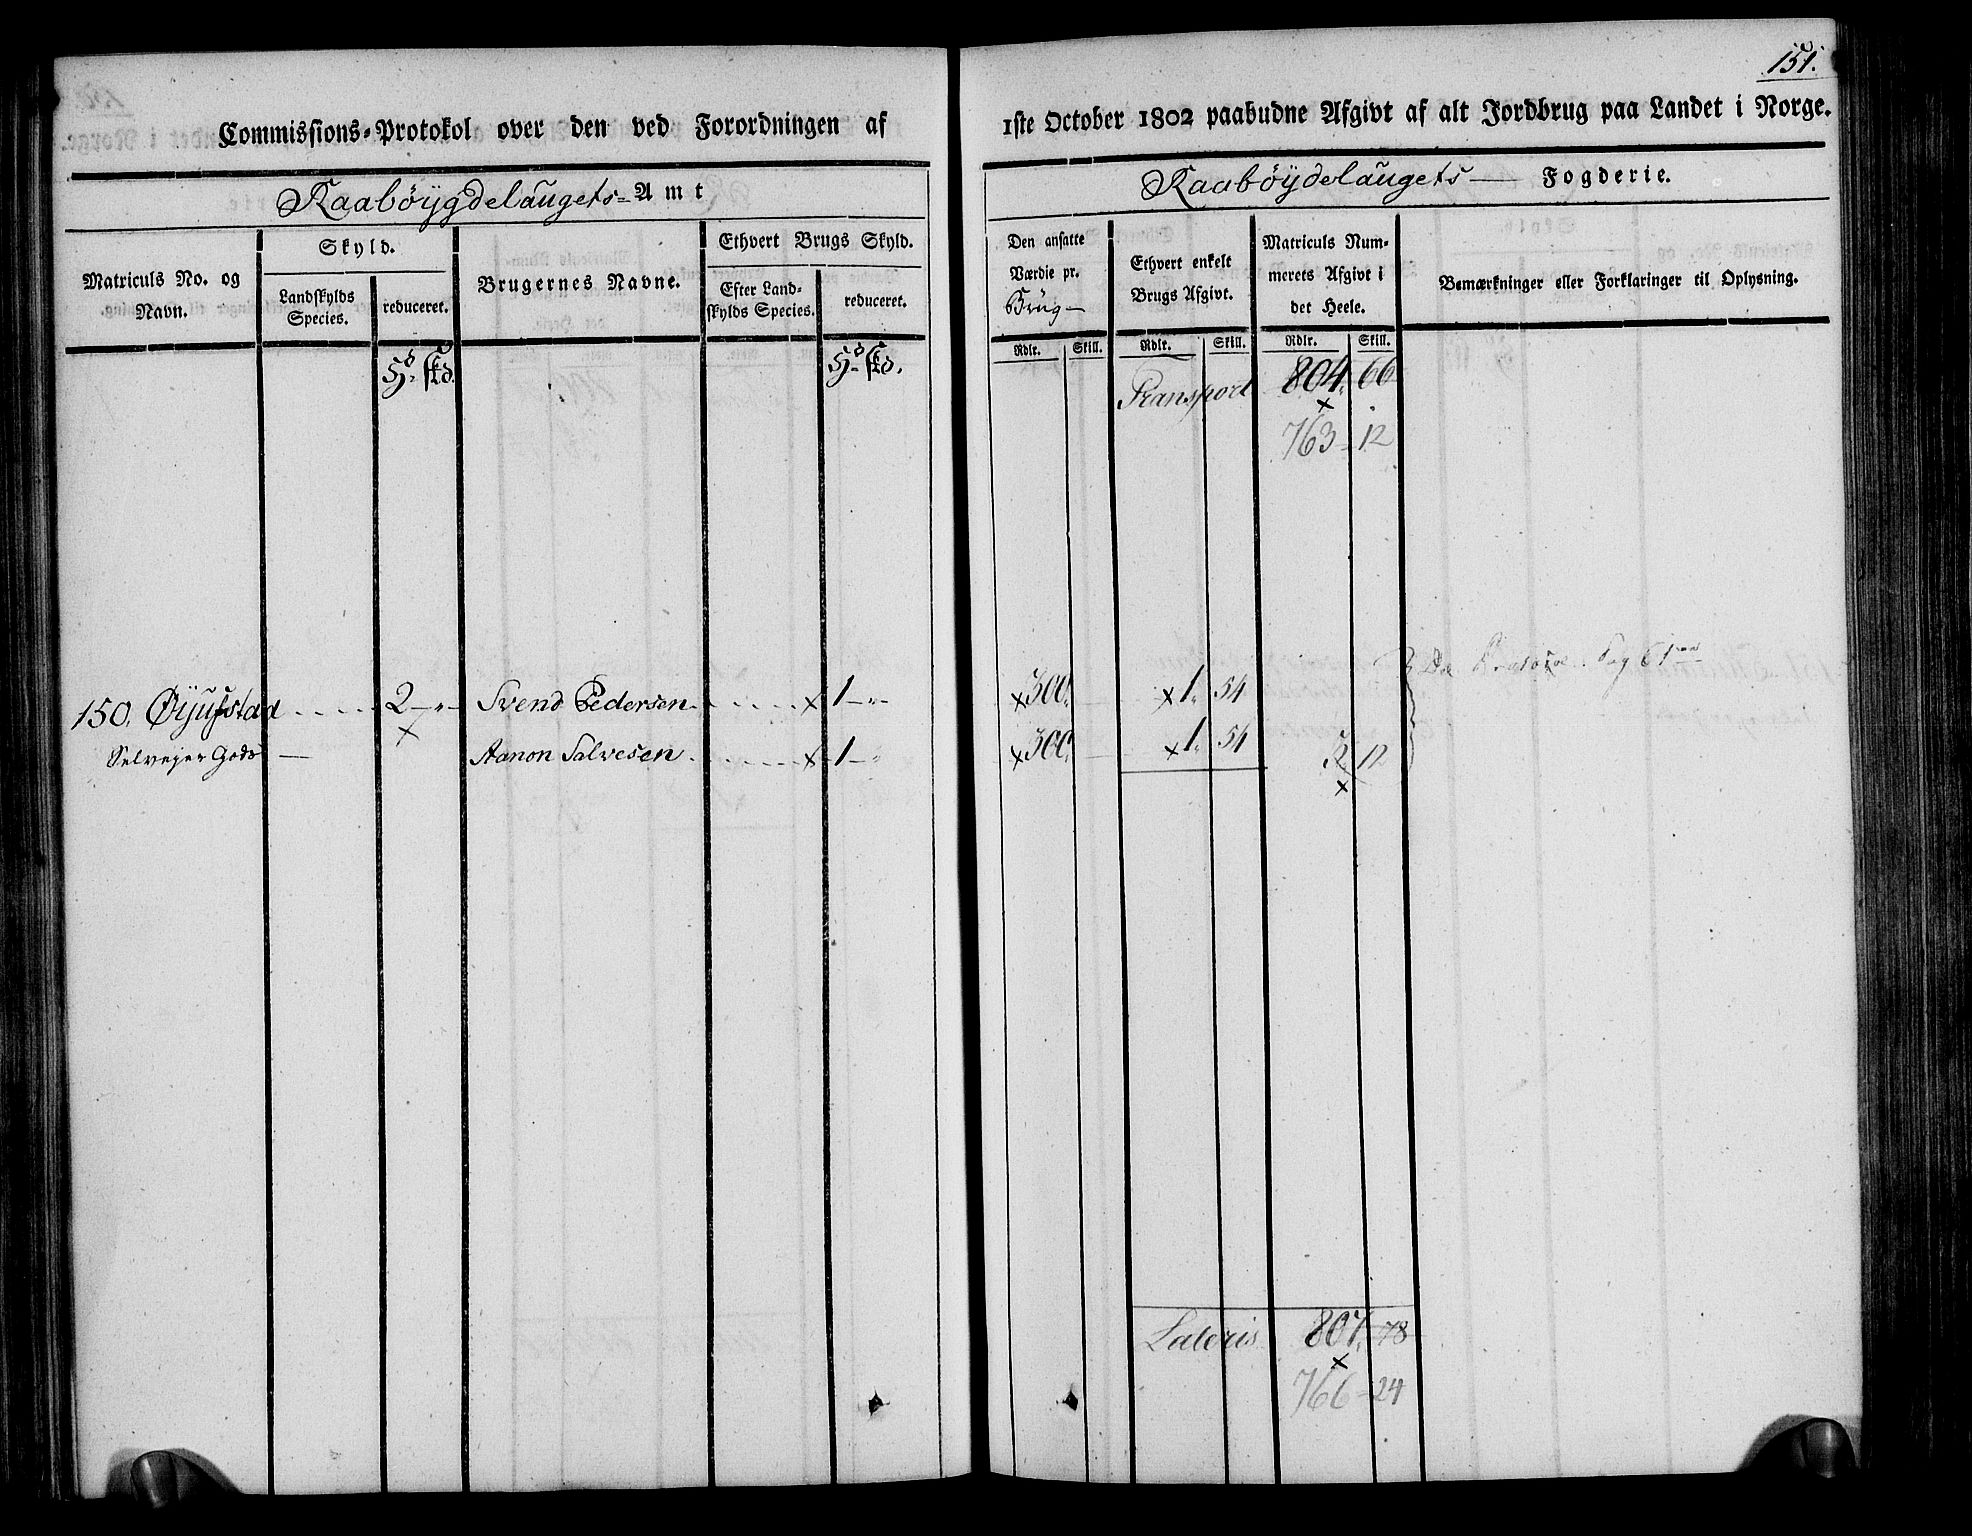 151.
Commissions-Protokol over den ved Forordningen af
1ste October 1802 paabudne Afgivt af alt Jordbrug paa Landet i Norge.
Raabøygdelaugets Amt
Raabøydelaugets Fogderie.
Matriculs No. og Navn.
Skyld.
Landskylds Species.
reduceret.
Brugernes Navne.
Ethvert Brugs Skyld.
Efter Landskylds Species.
reduceret.
Den ansatte Værdie pr. Brug
Ethvert enkelt Brugs Afgivt.
Matriculs Nummerets Afgivt i det Heele.
Bemærkninger eller Forklaringer til Oplysning.
Rdlr. Skill. Rdlr. Skill. Rdlr. Skill.
Hd. skd. Hd. skd.
Transport 804. 66
763 - 12
150. Øyufstad 2 - " - Svend Pedersen x 1 - " - x 300. x 1. 54
Selvejer Gods - Aanon Salvesen x 1 - " x 300. x 1. 54 3. 12
Lateris 807. 78
766 - 24